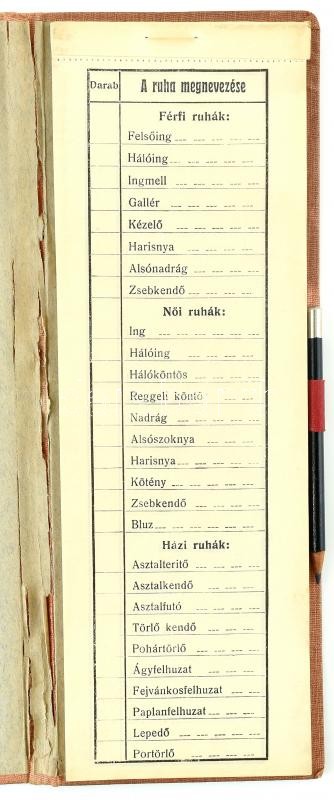 Darab A ruha megnevezése
Férfi ruhák:
Felsőing
Hálóing
Ingmell
Gallér
Kézelő
Harisnya
Alsónadrág
Zsebkendő
Női ruhák:
Ing
Hálóing
Hálóköntös
Reggeli köntö
Nadrág
Alsószoknya
Harisnya
Kötény
Zsebkendő
Bluz
Házi ruhák:
Asztalteritő
Asztalkendő
Asztalfutó
Törlő kendő
Pohártörlő
Ágyfelhuzat
Fejvánkosfelhuzat
Paplanfelhuzat
Lepedő
Portörlő